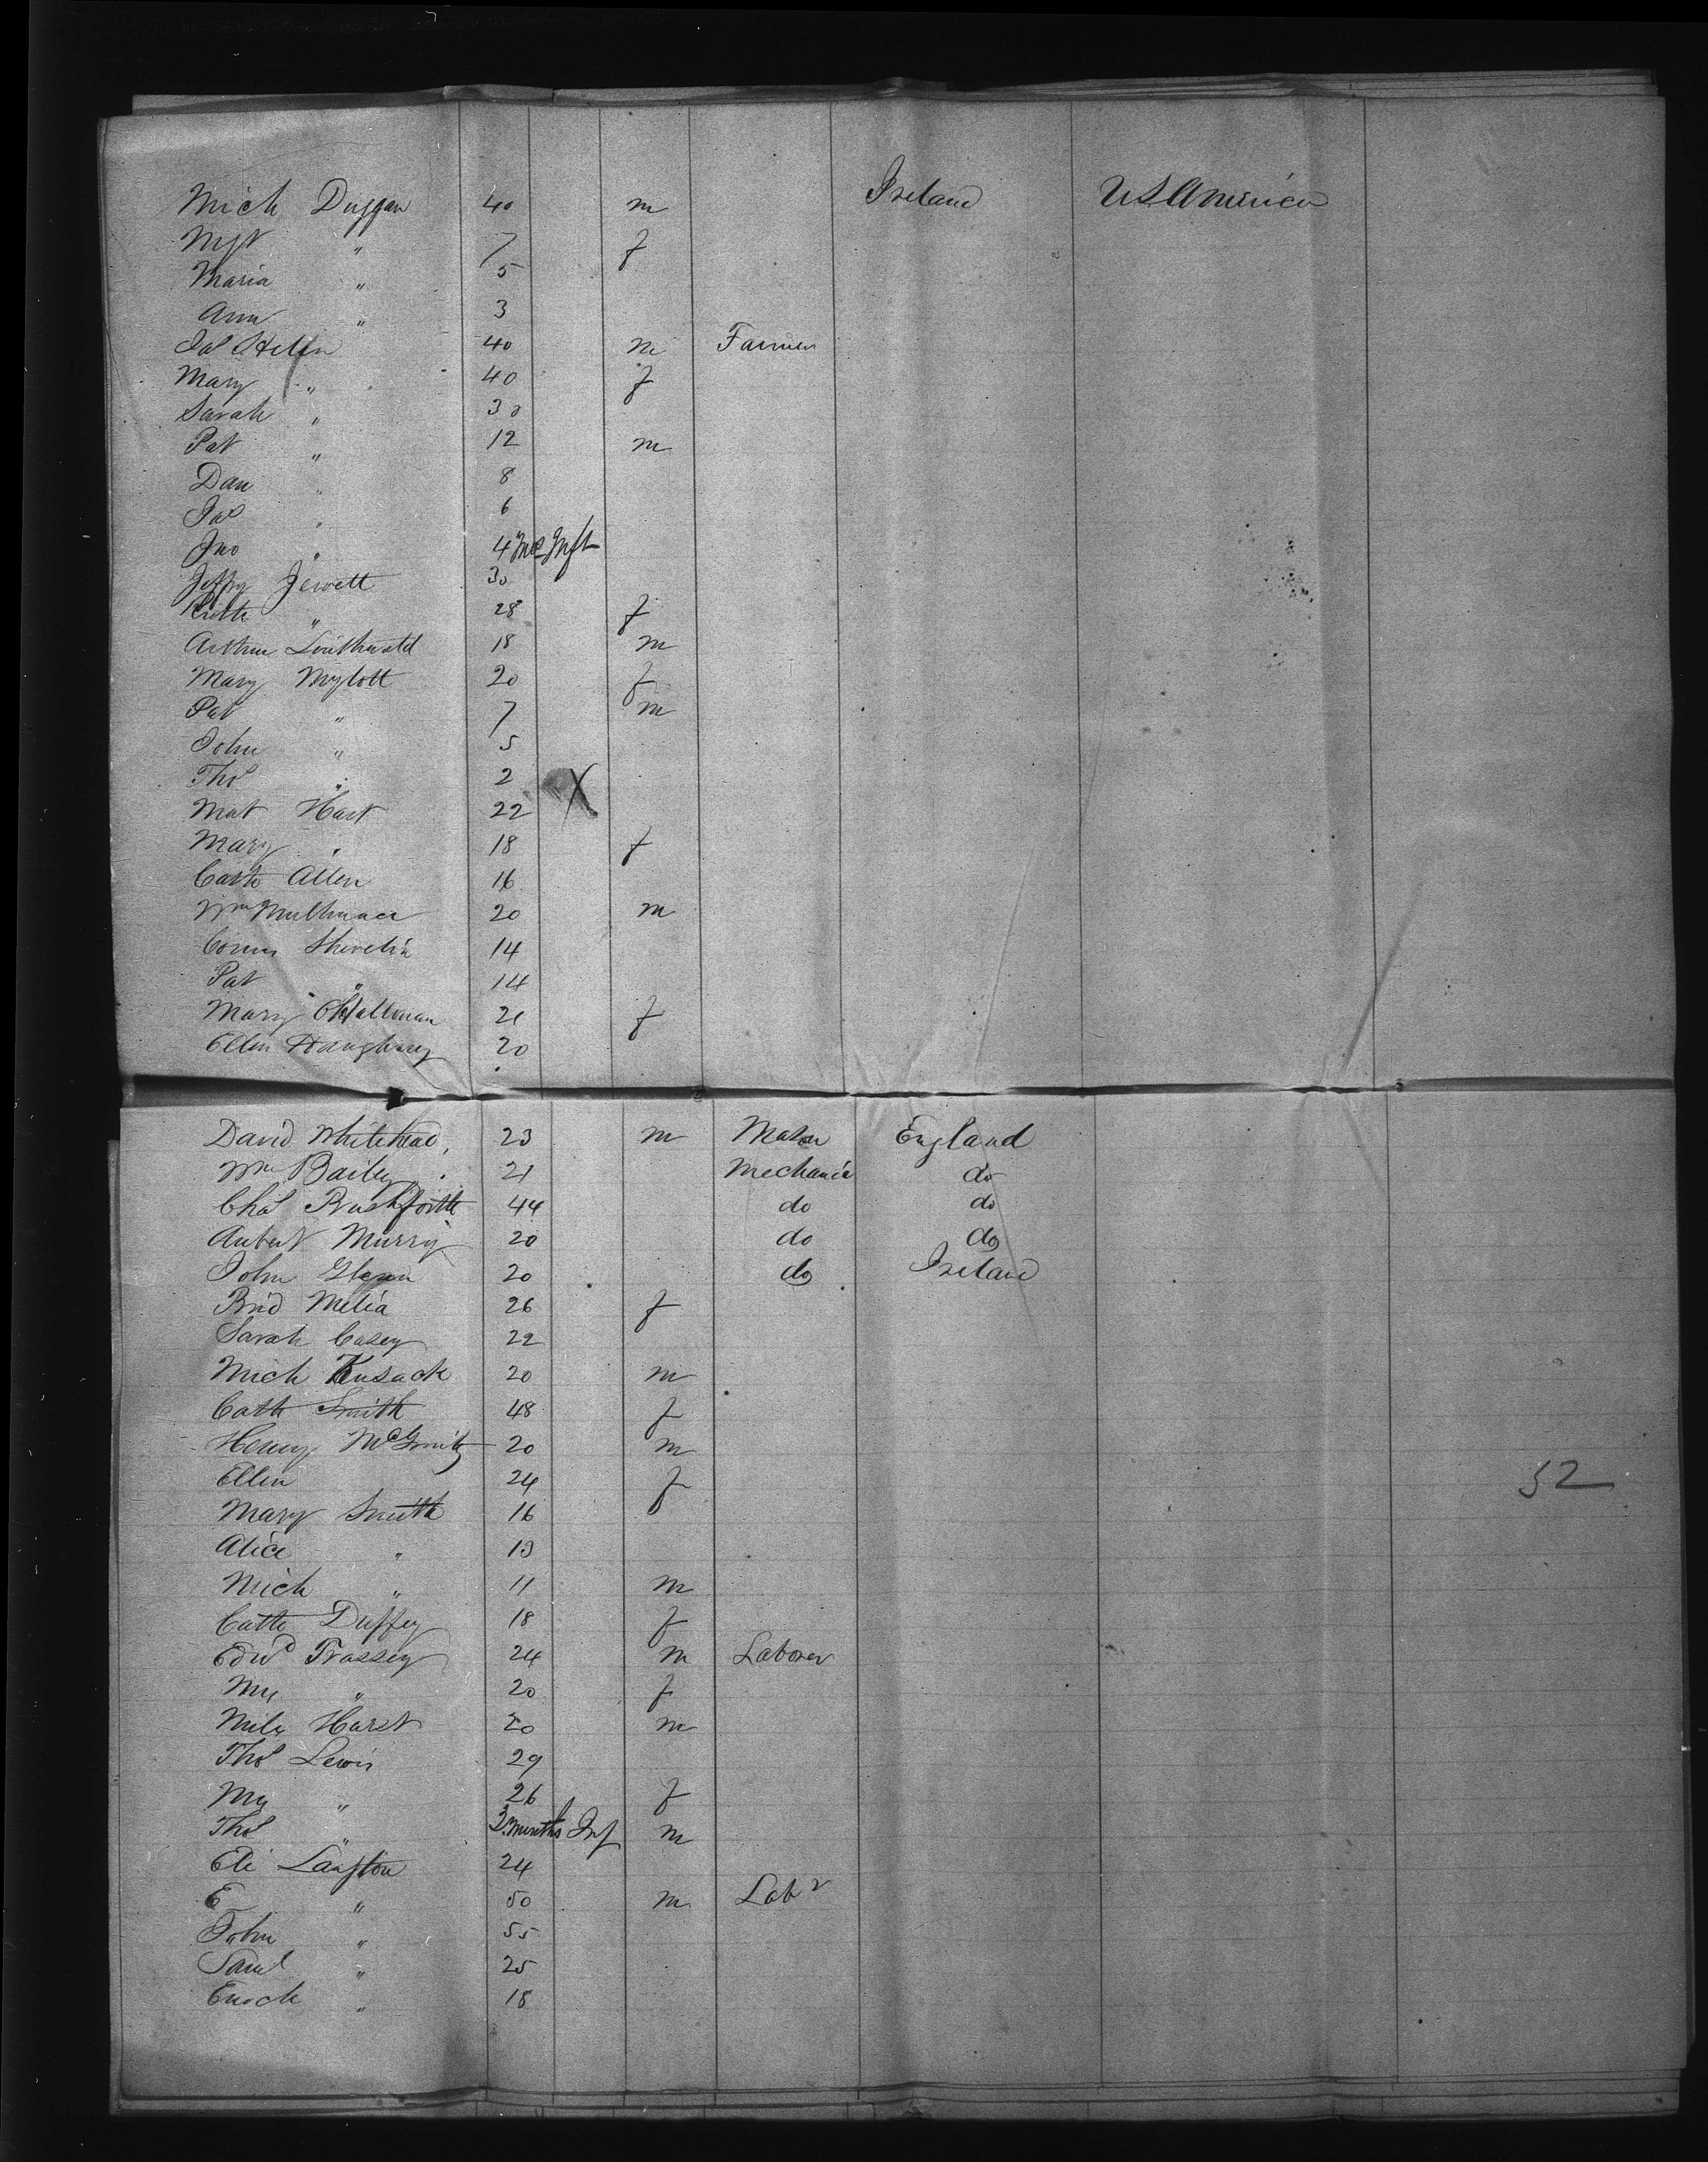 Mich Duggan 40 m Ireland U S America
Mgt " 7 f
Maria " 5
Ann " 3
Jas 40 m Farmer
Mary " 40 f
Sarah " 30
Pat " 12 m
Dan " 8
Jas " 6
Jno " 4 Mos Inft
Jewett 30
" 28 f
Arthur 18 m
Mary Mylott 20 f
Pat " 7 m
John " 5
Thos " 2
Mat Hart 22 X
Mary " 18 f
Cath Allen 16
Wm 20 m
14
Pat " 14
Mary 21 f
Ellen 20
David Whitehead 23 m Mason England
Wm Bailey 21 Mechanic do
Chas Bashforth 44 do do
Murry 20 do do
John Glynn 20 do Ireland
Brid Melia 26 f
Sarah Casey 22
Mich Kusack 20 m
Cath Smith 48 f
Henry 20 m
Ellen 24 f 52
Mary Smith 16
Alice " 13
Mich " 11 m
Cath Duffey 18 f
Edwd Trassey 24 m Laborer
My " 20 f
Hurst 20 m
Thos Lewis 29
My " 26 f
Thos " 3 months Inf m
Eli Langton 24
E " 50 m Labr
John " 55
Saml " 25
Enoch " 18